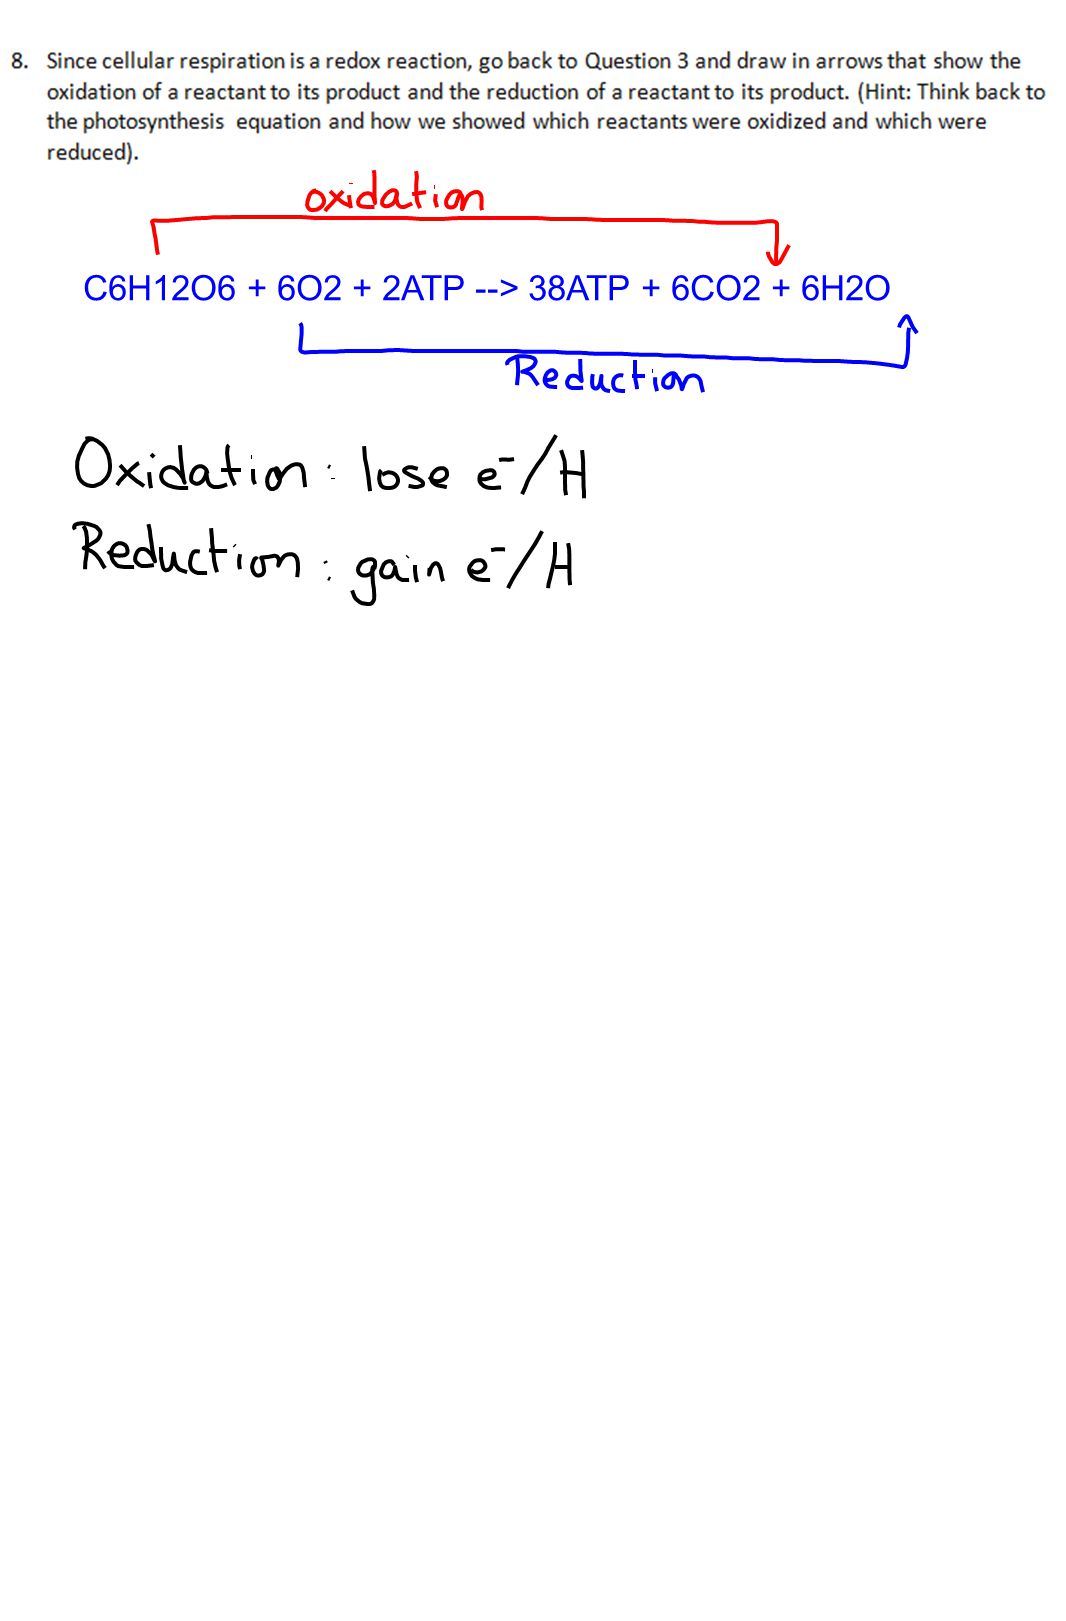 8. Since cellular respiration is a redox reaction, go back to Question 3 and draw in arrows that show the
oxidation of a reactant to its product and the reduction of a reactant to its product. (Hint: Think back to
the photosynthesis equation and how we showed which reactants were oxidized and which were
reduced).
oxidation
C6H12O6 + 6O2 + 2ATP --> 38ATP + 6CO2 + 6H2O
Reduction
Oxidation: lose e⁻/H
Reduction: gain e⁻/H